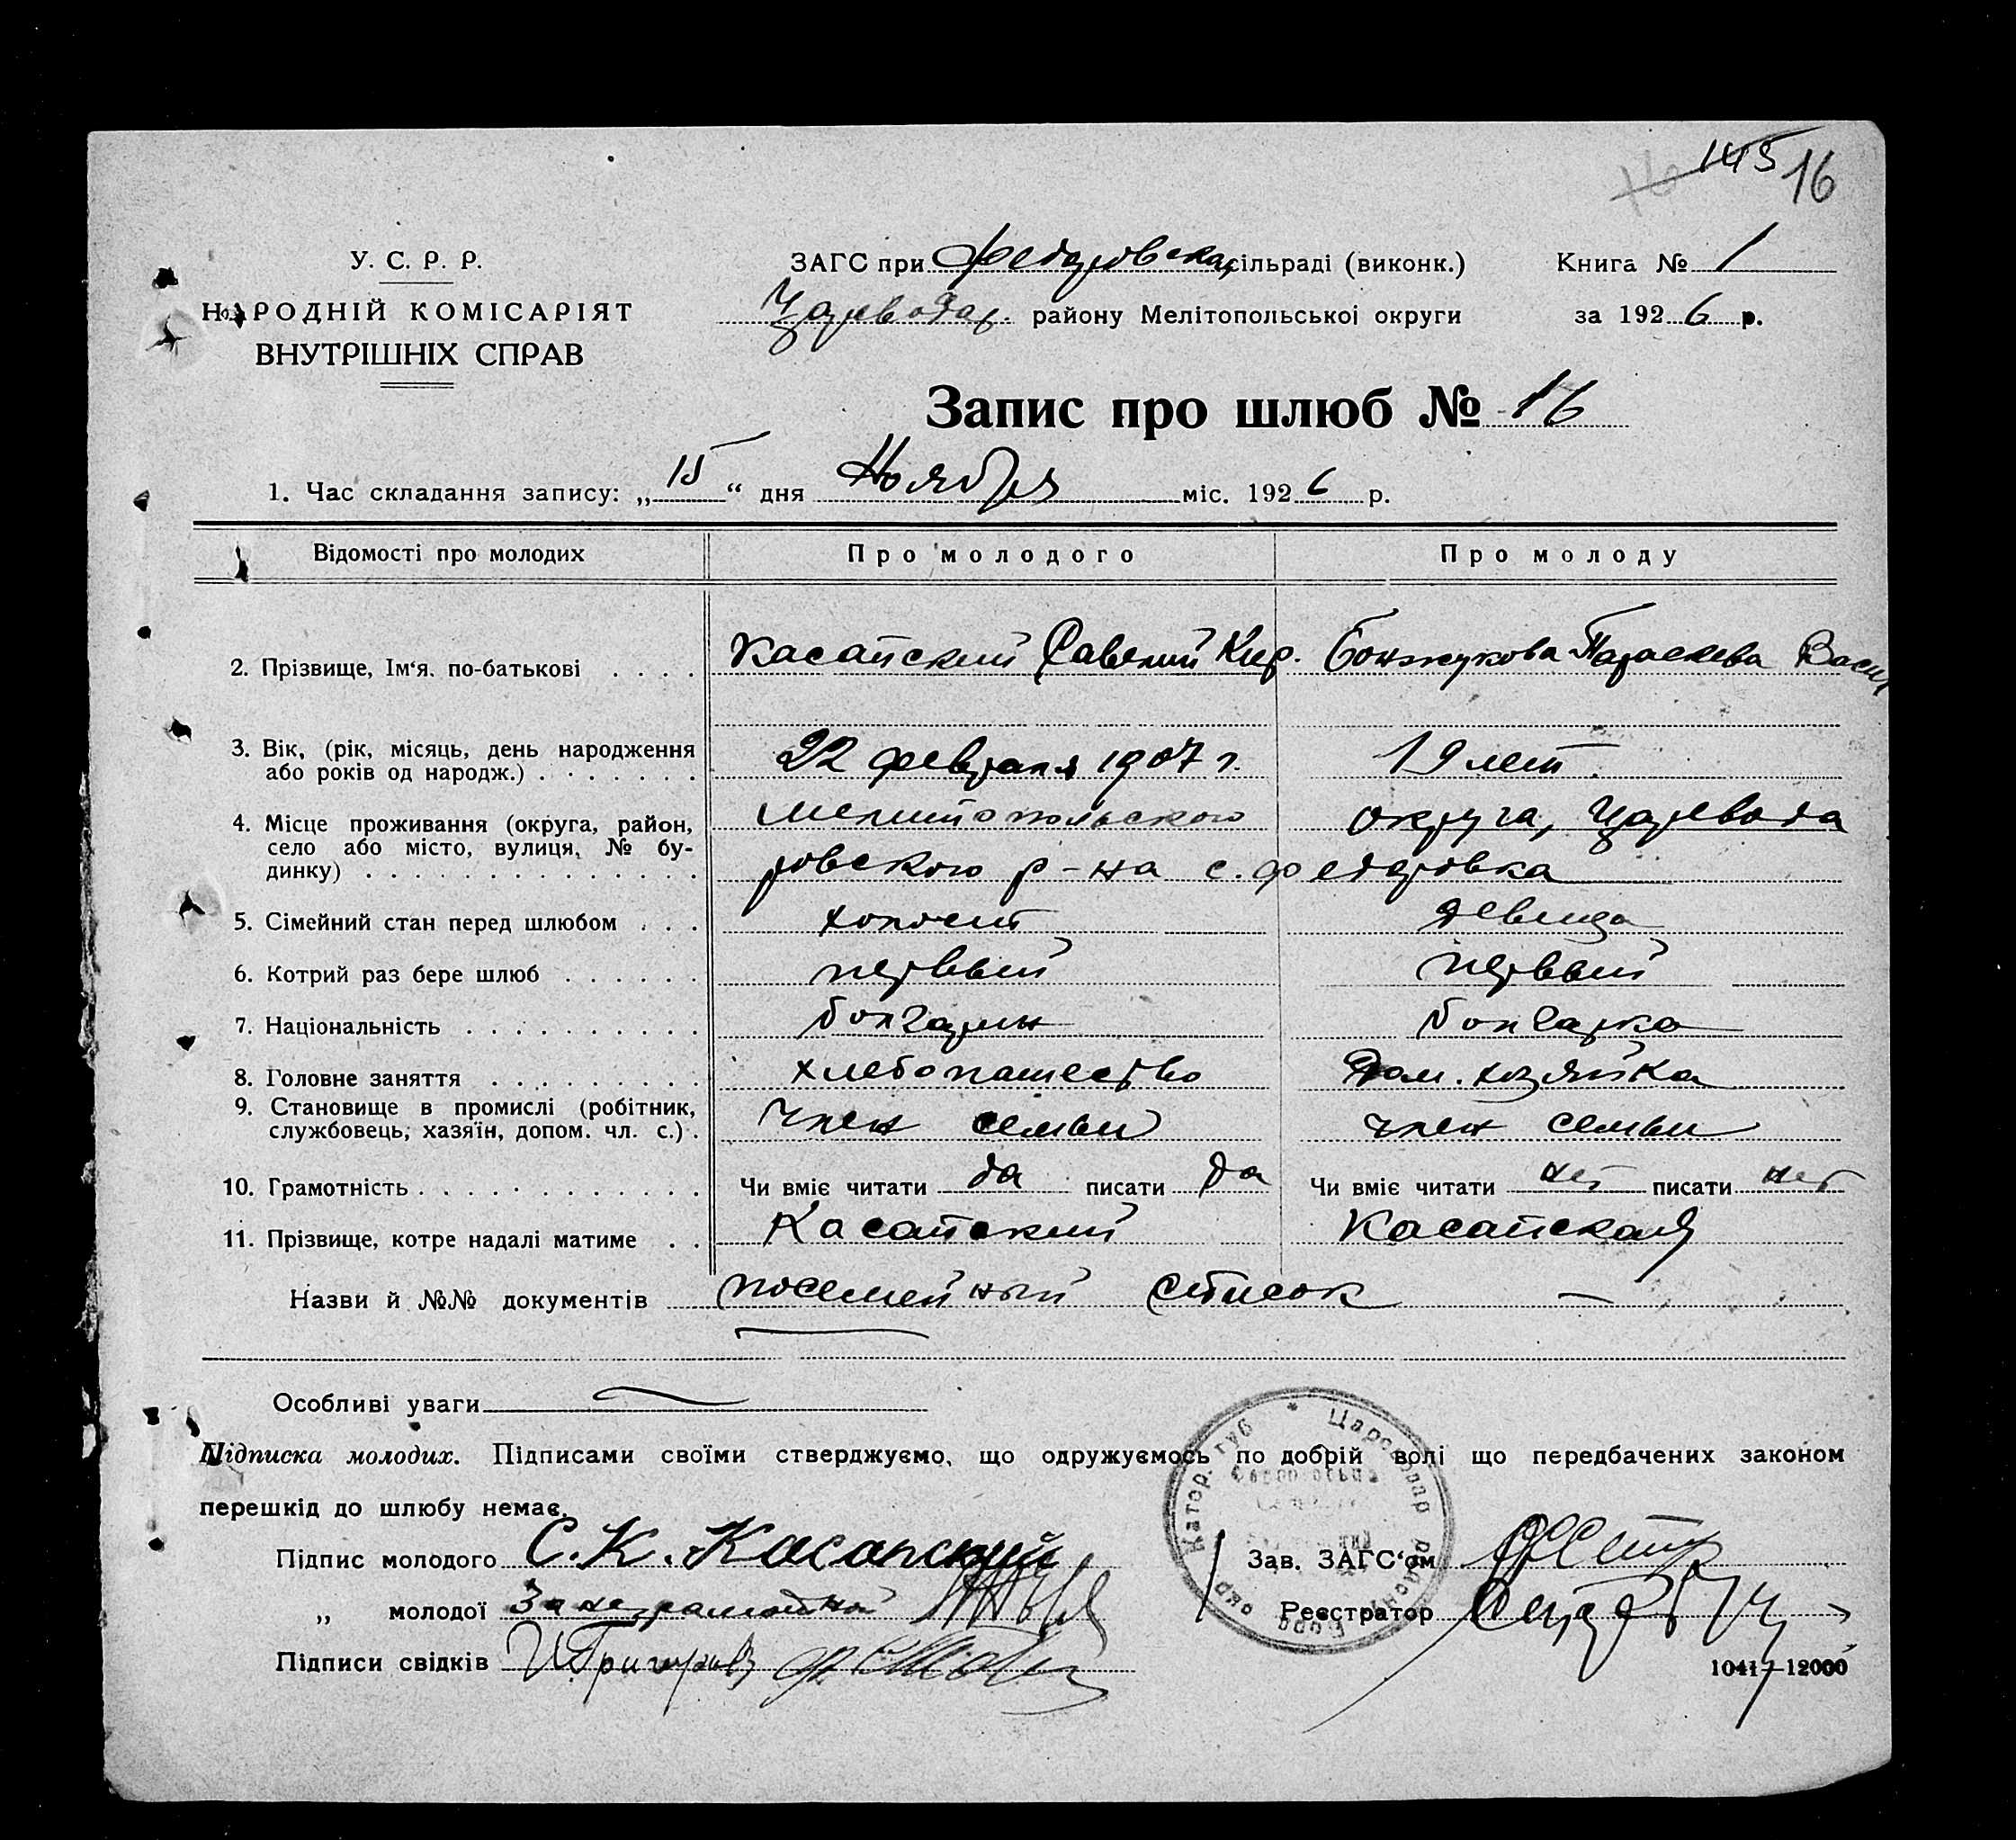 145 16
У. С. Р. Р.
НАРОДНІЙ КОМІСАРІЯТ
ВНУТРІШНІХ СПРАВ
ЗАГС при Федоровском сільраді (виконк.)
Цареводар. району Мелітопольської округи
Книга № 1
за 1926 р.
Запис про шлюб № 16
1. Час складання запису: „15“ дня Ноября міс. 1926 р.
Відомості про молодих Про молодого Про молоду
2. Прізвище, Ім‘я. по-батькові . . . . Касапский Савелий Кир. Бонжукова Параскева Васил
3. Вік, (рік, місяць, день народження
або років од народж.) . . . . . . . 22 февраля 1907 г. 19 лет.
4. Місце проживання (округа, район,
село або місто, вулиця, № бу-
динку) . . . . . . . . . . . . . . .
Мелитопольского округа, Царевода
ровского р-на с. Федоровка
5. Сімейний стан перед шлюбом . . . холост девица
6. Котрий раз бере шлюб . . . . . . первый первый
7. Національність . . . . . . . . . . болгарин болгарка
8. Головне заняття . . . . . . . . . хлебопашество Дом. хозяйка
9. Становище в промислі (робітник,
службовець, хазяїн, допом. чл. с.) . член семьи член семьи
10. Грамотність . . . . . . . . . . . . Чи вміє читати да писати да Чи вміє читати нет писати нет
11. Прізвище, котре надалі матиме . . Касапский Касапская
Назви й №№ документів посемейный список —
Особливі уваги
Підписка молодих. Підписами своїми стверджуємо, що одружуємось по добрій волі що передбачених законом
перешкід до шлюбу немає.
Підпис молодого С. К. Касапский
„ молодої За неграмотной
Підписи свідків И Григоров
Зав. ЗАГС‘ом
Реєстратор
1041—12000